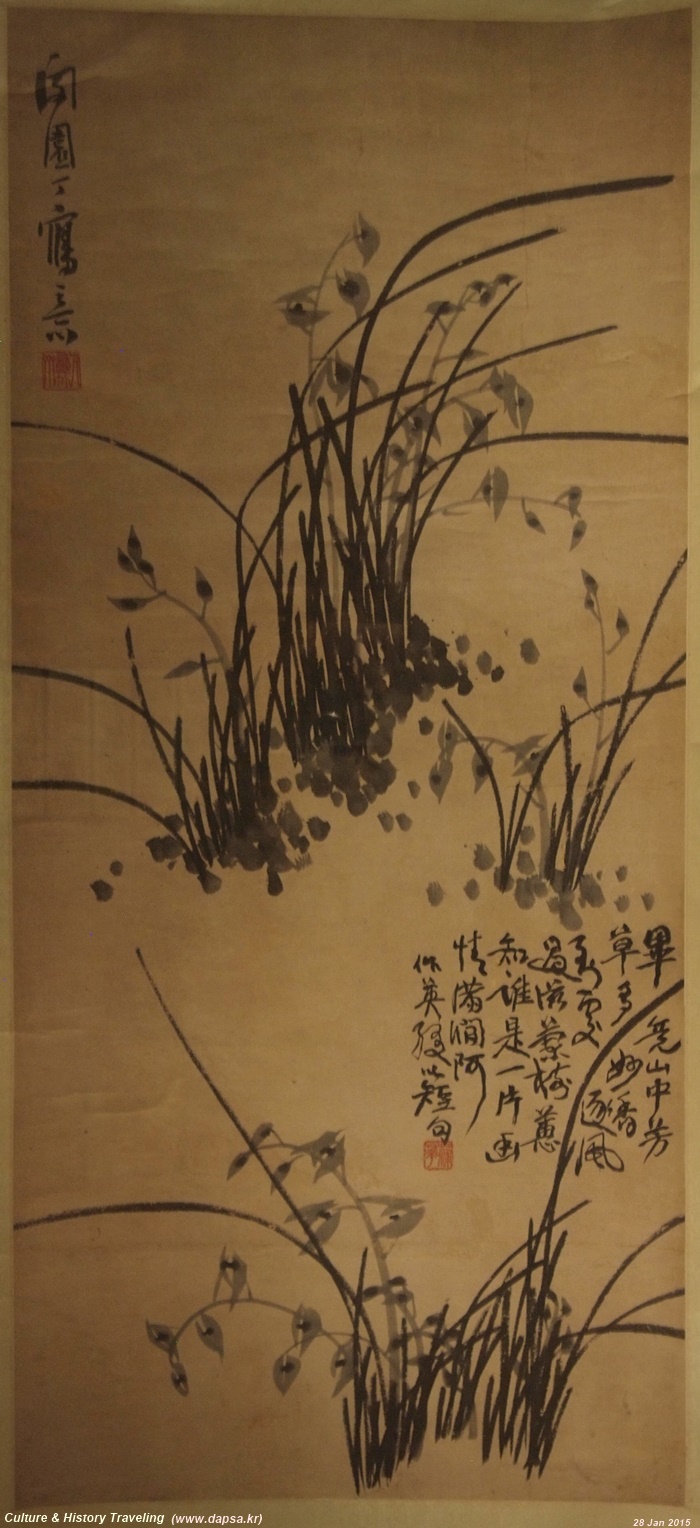 園丁寫意
畢竟山中芳
草多妙香逐風
到處
過滋蘭樹蕙
知誰是一片幽
情滿澗阿
作英短句
Culture & History Traveling (www.dapsa.kr)
28 Jan 2015